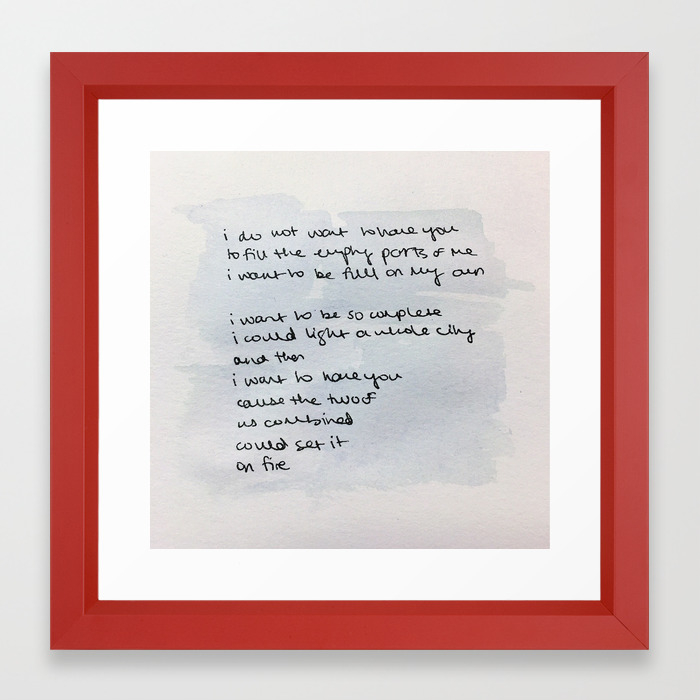 i do not want to have you
to fill the empty parts of me
i want to be full on my own
i want to be so complete
i could light a whole city
and then
i want to have you
cause the two of
us combined
could set it
on fire